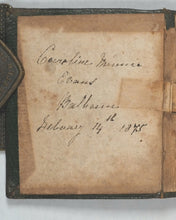 Caroline Minnie
Evans
Malbourn
Febuary 14th 1875